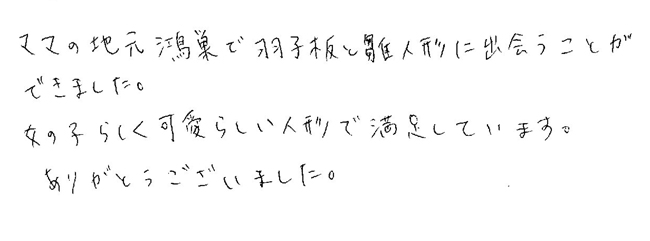 ママの地元鴻巣で羽子板と雛人形に出会うことが
できました。
女の子らしく可愛らしい人形で満足しています。
ありがとうございました。